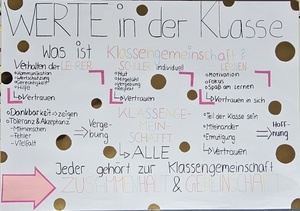 WERTE in der Klasse
Was ist Klassengemeinschaft?
Verhalten der LEHRER
SCHÜLER individuell
LERNEN
•Kommunikation
•Wertschätzung
•Gerechtigkeit
•Hilfe
↳Vertrauen
•Mut
•Hilfe
↳Vertrauen
•Motivation
•Fokus
•Spaß am Lernen
↳Vertrauen in sich
•Dankbarkeit zeigen
•Toleranz & Akzeptanz
-Menschen
-Fehler
-Vielfalt
⇒ Verge-
bung
KLASSENGE-
MEIN
SCHAFT
↳ALLE
•Teil der Klasse sein
•Miteinander
•Ermutigung
↳Vertrauen
⇒ Hoff-
nung
Jeder gehört zur Klassengemeinschaft
ZUSAMMENHALT & GEMEINSCHAFT